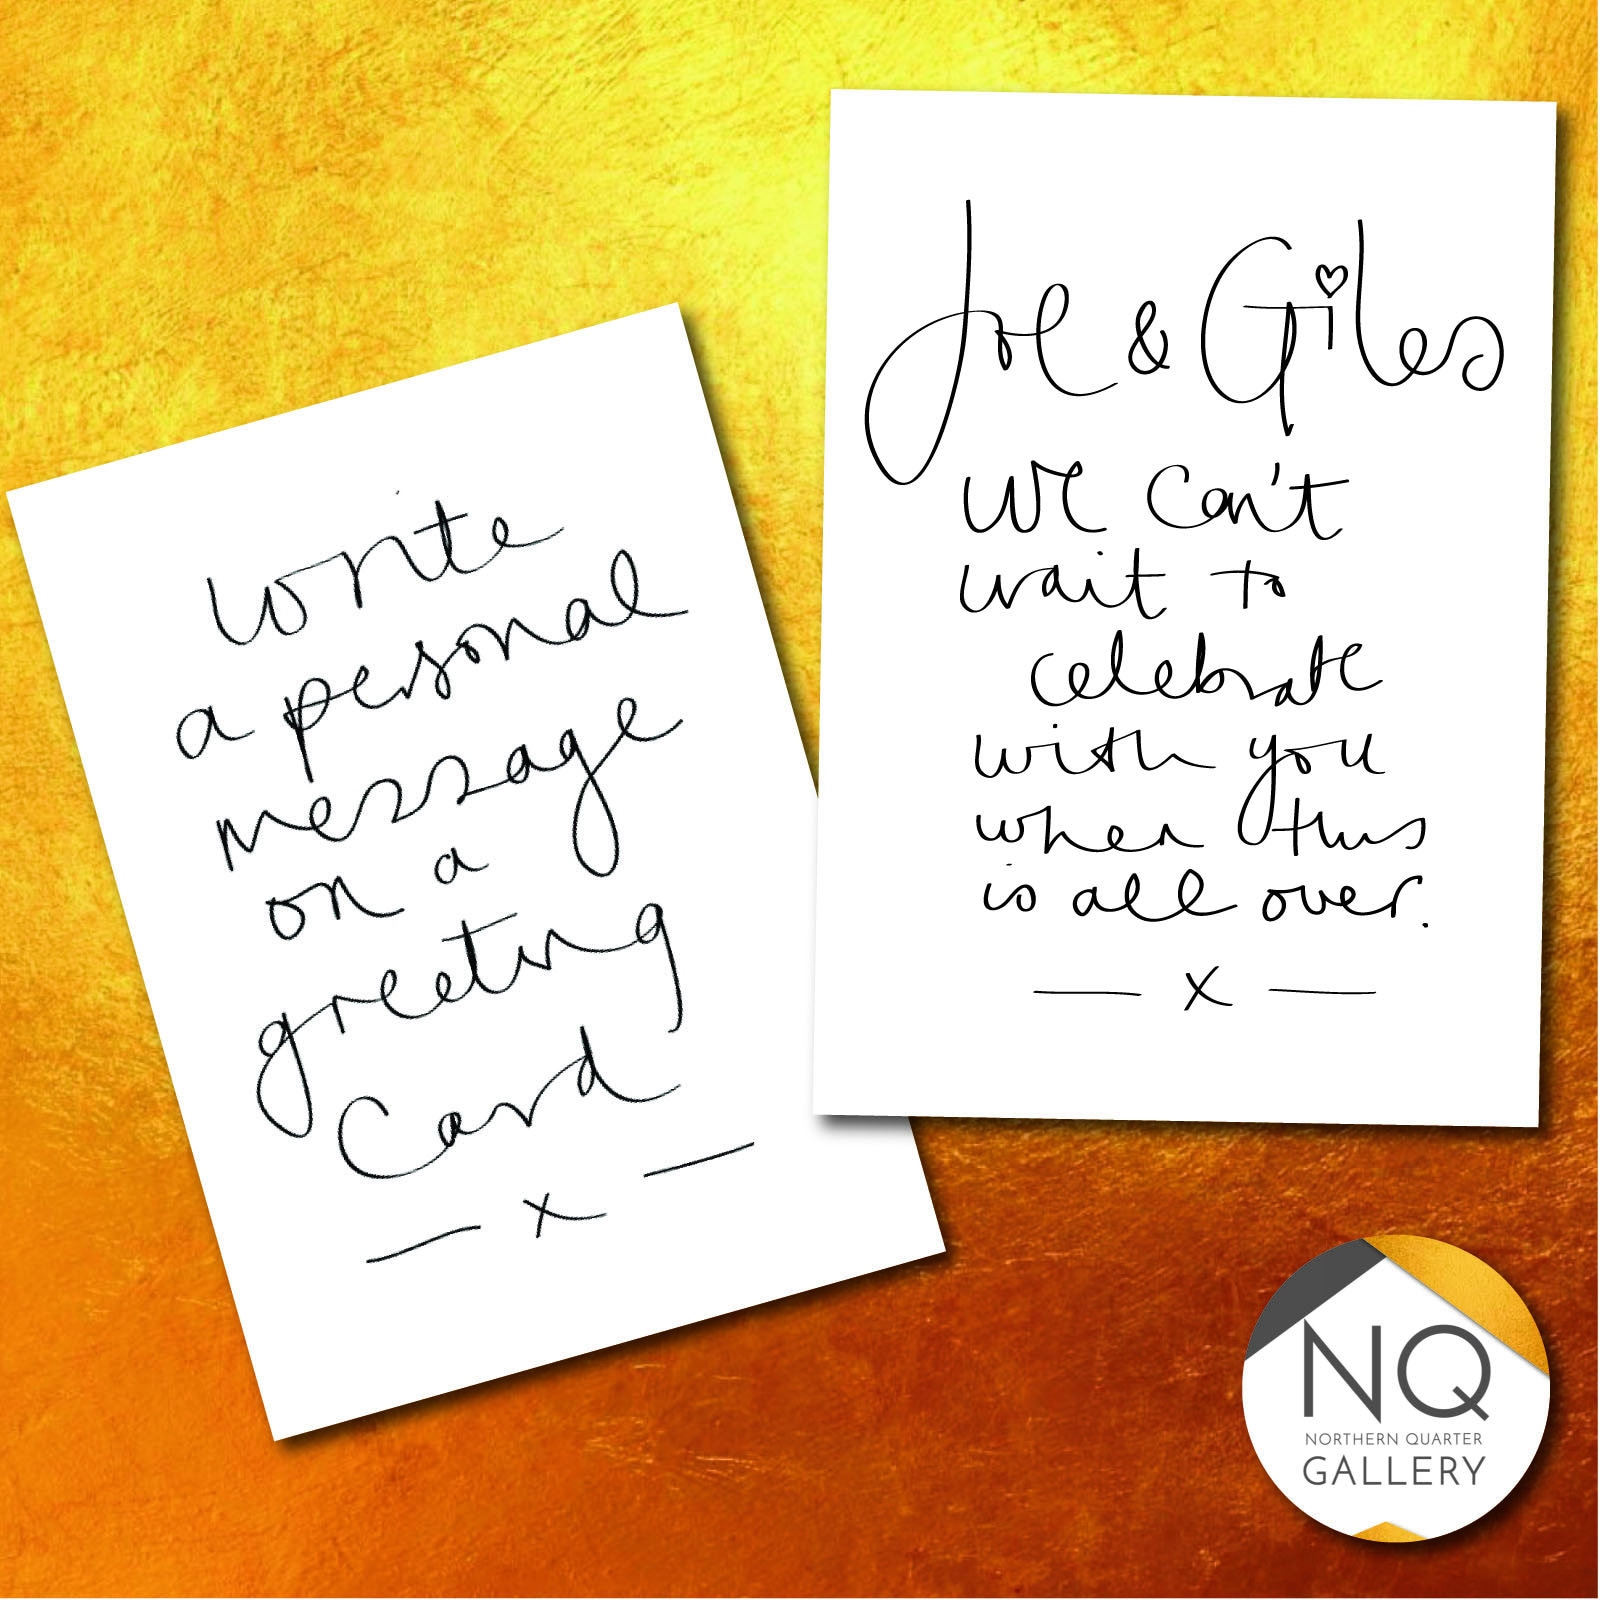 write
a personal
message
on a
greeting
Card
— x —
Joe & Giles
We Can't
wait to
celebrate
with you
when this
is all over.
— x —
NQ
NORTHERN QUARTER
GALLERY